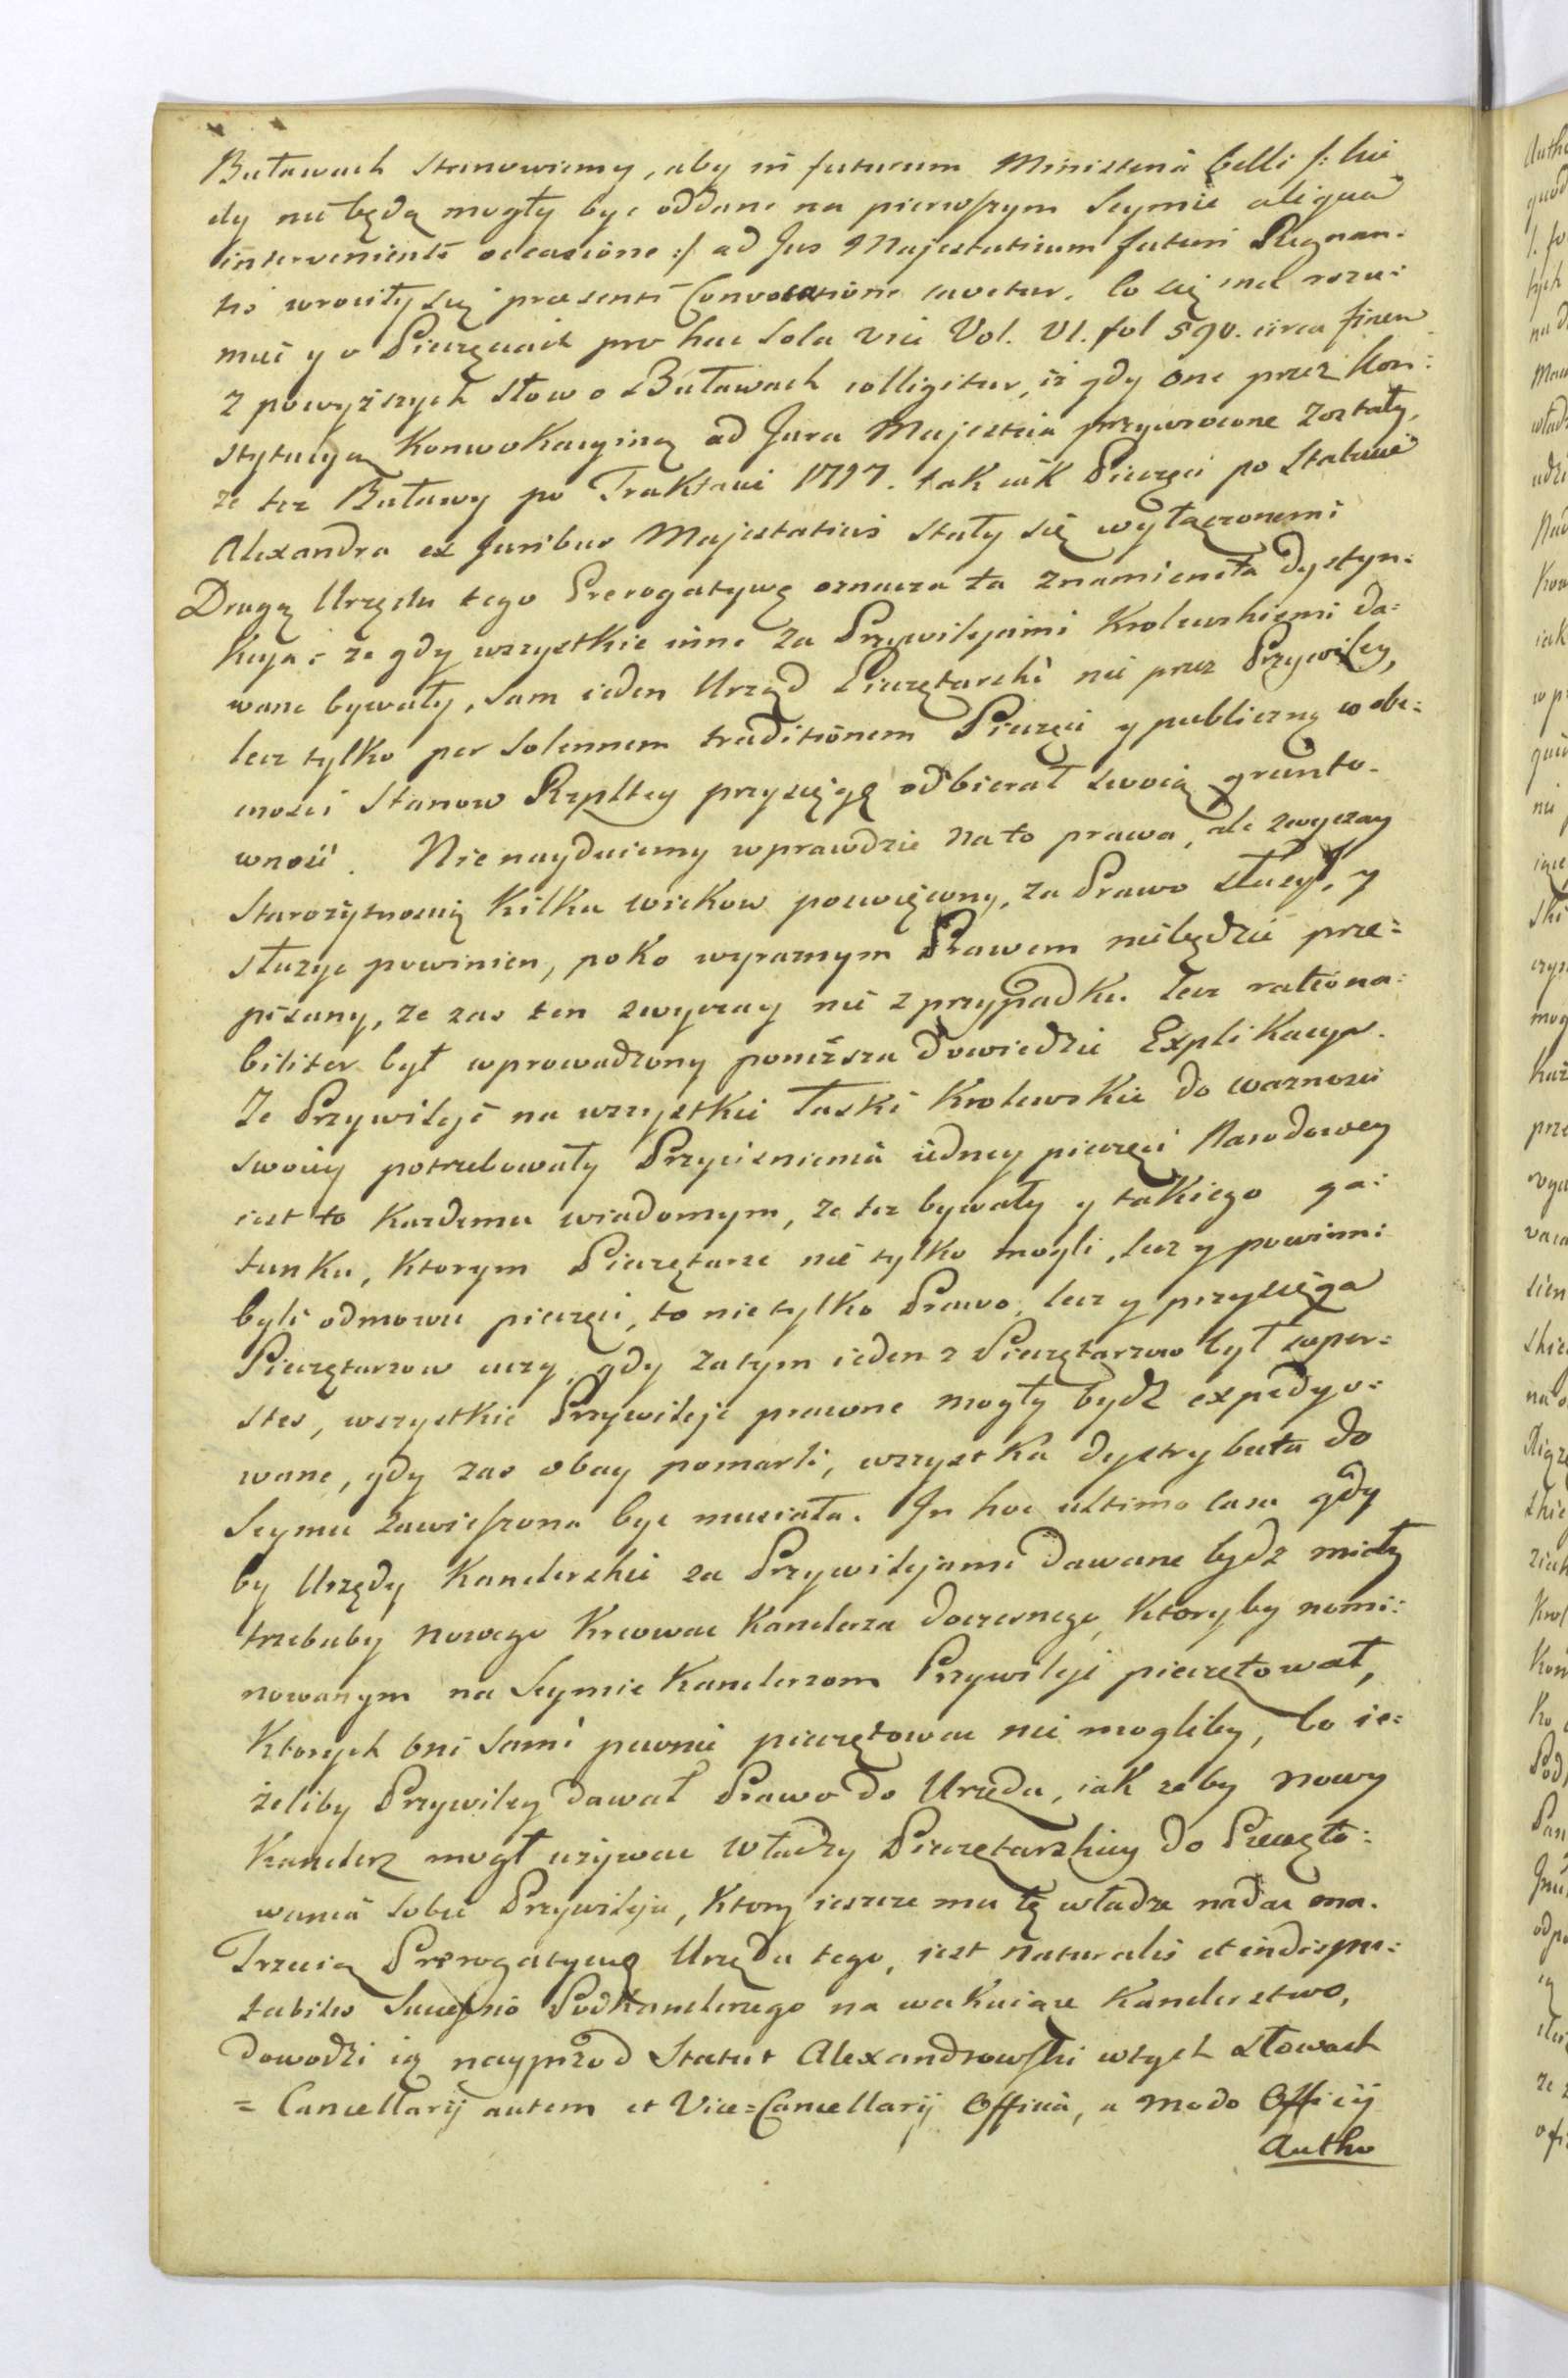 Buławach stanowiemy, aby in futurum Ministeria belli /: kie
dy nie będą mogły byc oddane na pierwszym Seymie aliqua
interveniente occasione :/ ad Jus Majestaticum futuri Regnan-
tis wrociły się praesenti Convocatione cavetur. Co się ma rozu:
mieć y o Pieczęciach pro hac sola vice Vol. VI. fol 590. circa finem
z powyższych słow o Buławach colligitur, iż gdy one przez Kon:
stytucyą Konwokacyiną ad Jura Majestatis przywrocone zostały,
ze tez Buławy po Traktacie 1717. tak iak Pieczęci po Statucie
Alexandra ex Juribus Majestaticis stały się wyłączonemi
Drugą Urzędu tego Prerogatywę oznacza ta znamienita dystyn:
kcya: ze gdy wszystkie inne za Przywilejami Krolewskiemi da:
wane bywały, sam ieden Urząd Pieczętarski nie przez Przywiley,
lecz tylko per solennem traditionem Pieczęci y publiczną w obe:
cnosci Stanow Rzpltey przysięgę odbierał swoią grunto-
wność. Nie nayduiemy wprawdzie na to prawa, ale zwyczay
Starożytnoscią kilku wiekow poswięcony, za Prawo służył, y
służyc powinien, poko wyraznym Prawem nie będzie prze=
pisany, ze zas ten zwyczay nie z przypadku lecz rationa:
biliter był wprowadzony poniższa dowiedzie Explikacya.
Ze Przywileje na wszystkie łaski Krolewskie do waznosci
swoiey potrzebowały Przycisnienia iedney pieczęci Narodowey
iest to kazdemu wiadomym, ze tez bywały y takiego ga:
tunku, ktorym Pieczętarze nie tylko mogli, lecz y powinni
byli odmowic pieczęci, to nie tylko Prawo, lecz y przysięga
Pieczętarzow uczy, gdy zatym ieden z Pieczętarzow był super:
stes, wszystkie Przywileje prawne mogły bydz expedyo:
wane, gdy zas obay pomarli, wszystka dystrybuta do
Seymu zawieszona byc musiała. In hoc ultimo casu gdy
by Urzędy Kanclerskie za Przywilejami dawane bydz miały
trzebaby nowego kreowac Kanclerza doczesnego, ktoryby nomi:
nowanym na Seymie Kanclerzom Przywileje pieczętował,
Ktorych oni sami pewnie pieczętowac nie mogliby, bo ie:
żeliby Przywiley dawał Prawo do Urzędu, iak zeby nowy
Kanclerz mogł używac władzy Pieczętarskiey do Pieczęto:
wania sobie Przywileju, ktory ieszcze mu tę władze nadac ma.
Trzecią Prerogatywą Urzędu tego, iest naturalis et indispu:
tabilis Successio Podkanclerzego na wakuiące Kanclerstwo,
dowodzi ią nayprzod Statut Alexandrowski w tych słowach
= Cancellarij autem et Vice=Cancellarij Officia, a modo Officij
Autho